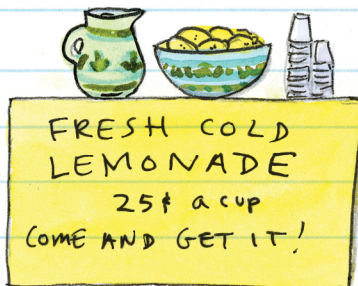 FRESH COLD
LEMONADE
25¢ a cup
COME AND GET IT!